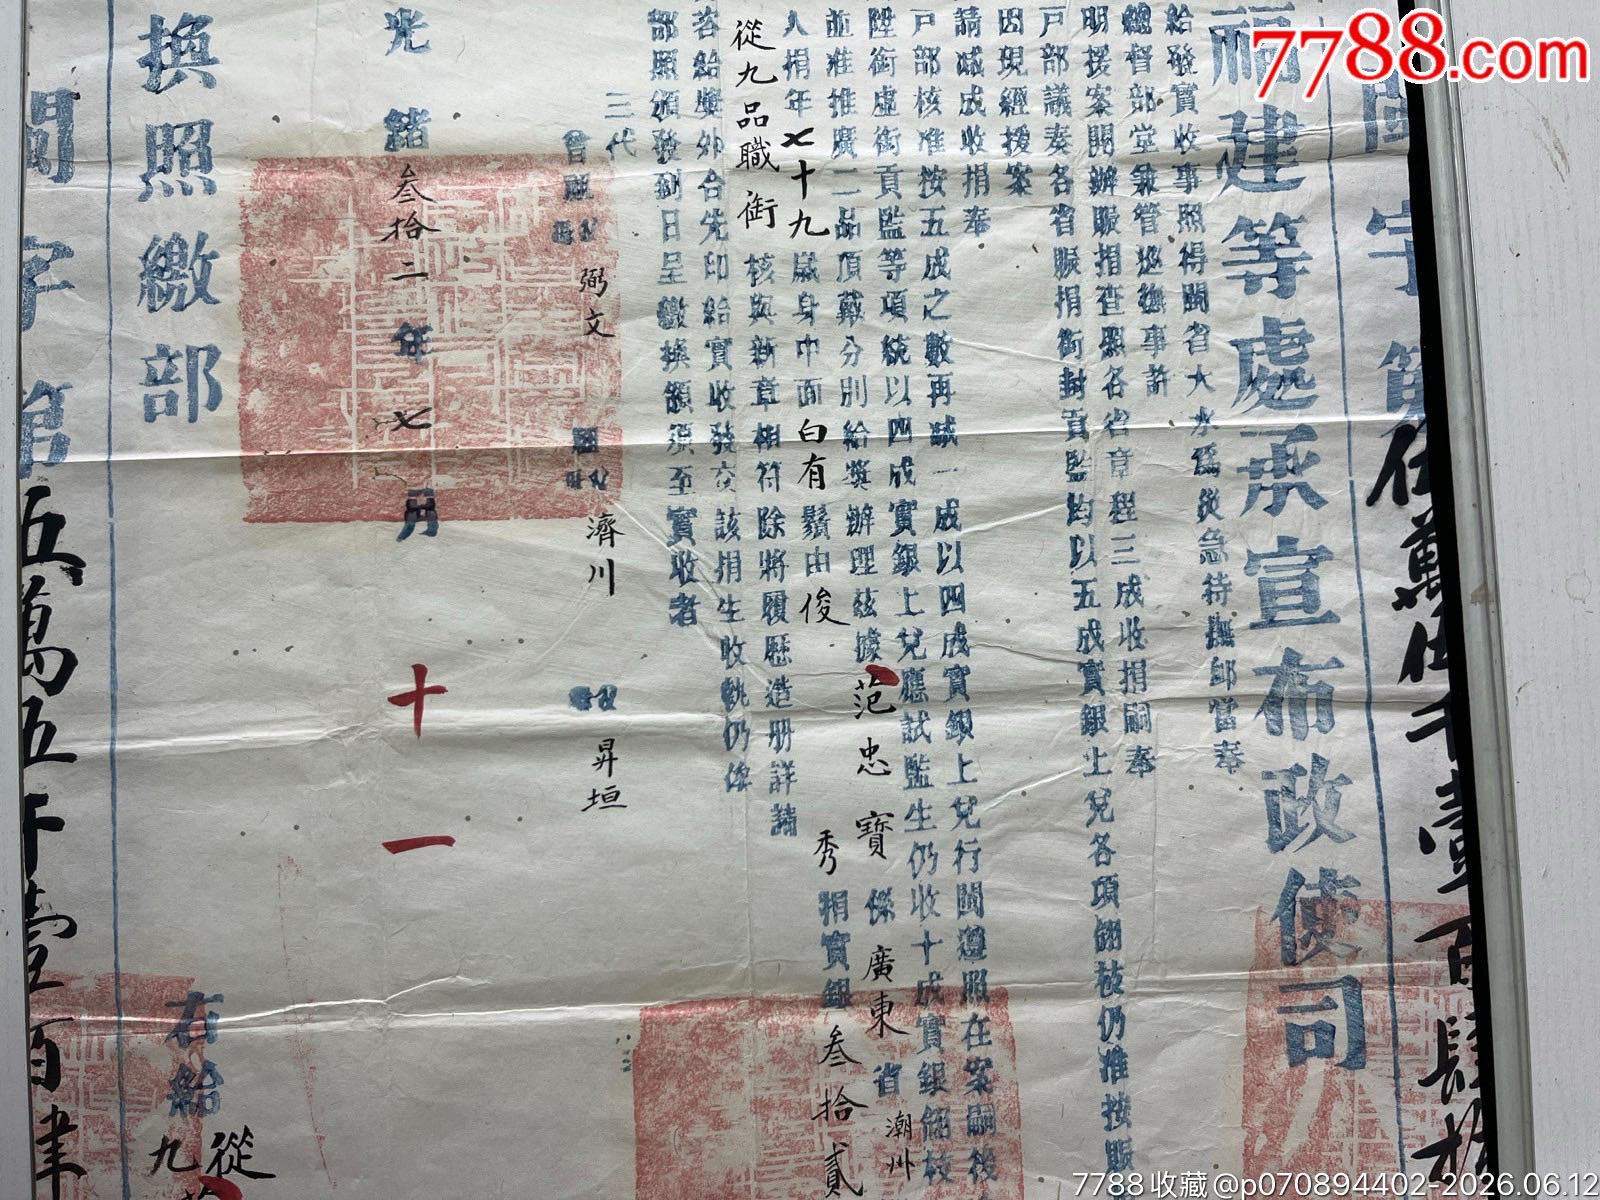 7788.com
閩字第伍萬伍千壹百肆拾
福建等處承宣布政使司
給發實收事照得閩省大水爲災急待撫卹當奉
總督部堂兼管巡撫事許
明援案開辦賑捐查照各省章程三成收捐嗣奉
戶部議奏各省賑捐銜封貢監均以五成實銀上兌各項翎枝仍准按賑
因現經援案
請減成收捐奉
戶部核准按五成之數再減一成以四成實銀上兌行閩遵照在案嗣後
陞銜虛銜貢監等項統以四成實銀上兌應試監生仍收十成實銀翎枝
並准推廣二品頂戴分別給獎辦理茲據范忠寶係廣東省潮州
人捐年七十九歲身中面白有鬚由俊秀捐實銀叁拾貳
從九品職銜核與新章相符除將履歷造册詳請
咨給獎外合先印給實收發交該捐生收執仍俟
部照頒發到日呈繳換領須至實收者
三代
曾祖 弼文
祖 濟川
父 昇垣
光緒叁拾二年七月十一
右給從
九
換照繳部
閩字第五萬五千壹百肆
7788收藏@p070894402-2026.06.12